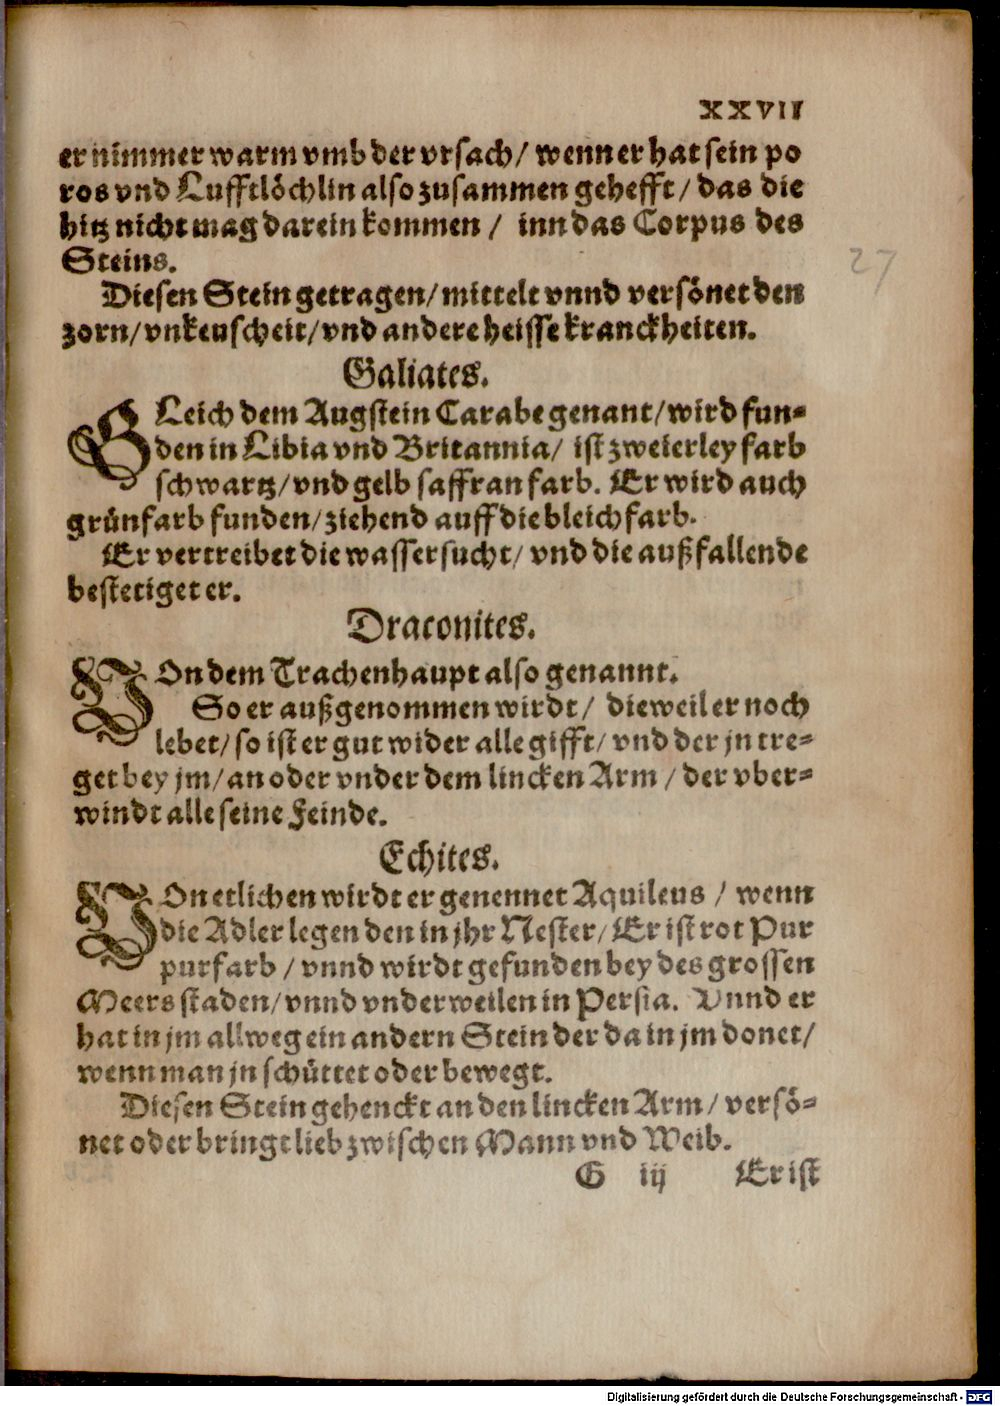 XXVII
er nimmer warm vmb der vrsach/ wenn er hat sein po
ros vnd Lufftlöchlin also zusammen gehefft/ das die
hitz nicht mag darein kommen / inn das Corpus des
Steins.
27
Diesen Stein getragen/ mittelt vnnd versönet den
zorn/ vnkeuscheit/ vnd andere heisse kranckheiten.
Galiates.
GLeich dem Augstein Carabe genant/ wird fun-
den in Libia vnd Britannia/ ist zweierley farb
schwartz/ vnd gelb saffran farb. Er wird auch
grünfarb funden/ ziehend auff die bleich farb.
Er vertreibet die wassersucht/ vnd die außfallende
bestetiget er.
Draconites.
VOn dem Trachenhaupt also genannt.
So er außgenommen wirdt/ dieweil er noch
lebet/ so ist er gut wider alle gifft/ vnd der jn tre-
get bey jm/ an oder vnder dem lincken Arm / der vber-
windt alle seine Feinde.
Echites.
VOn etlichen wirdt er genennet Aquileus / wenn
die Adler legen den in jhr Nester/ Er ist rot Pur
purfarb / vnnd wirdt gefunden bey des grossen
Meers staden/ vnnd vnderweilen in Persia. Vnnd er
hat in jm allweg ein andern Stein der da in jm donet/
wenn man jn schüttet oder bewegt.
Diesen Stein gehenckt an den lincken Arm/ versö-
net oder bringt lieb zwischen Mann vnd Weib.
G iij Er ist
Digitalisierung gefördert durch die Deutsche Forschungsgemeinschaft - DFG